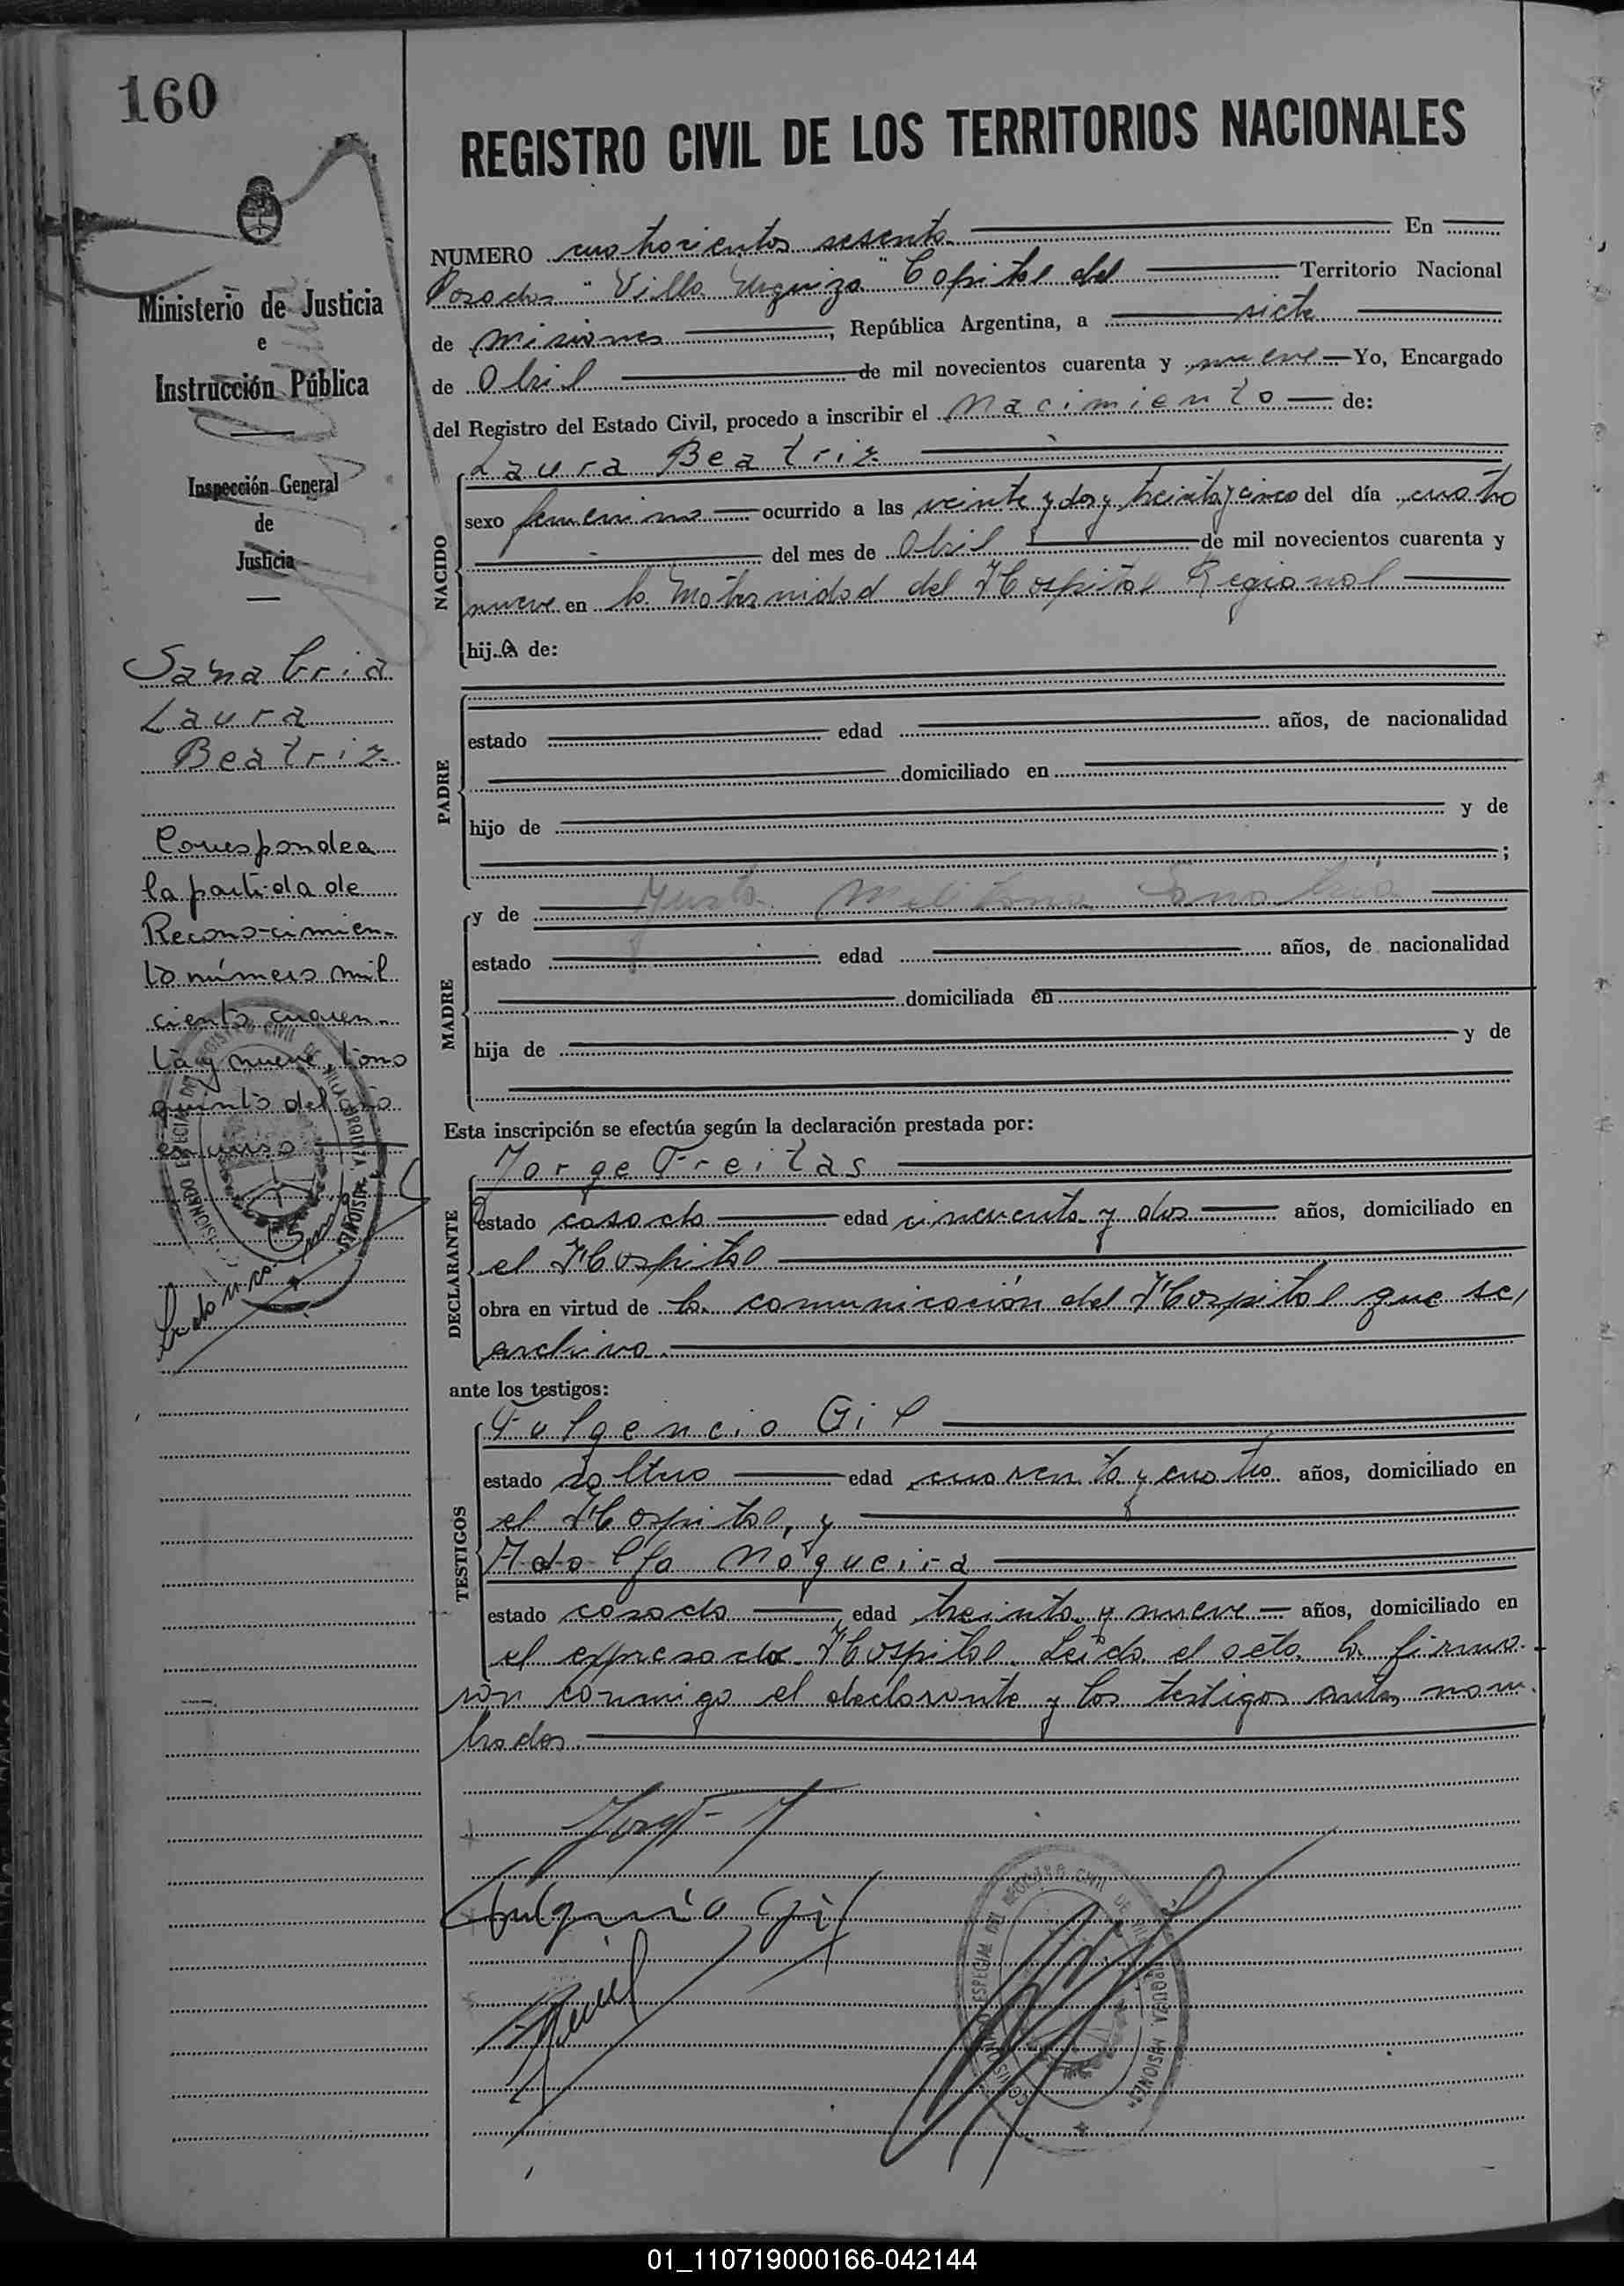 160
REGISTRO CIVIL DE LOS TERRITORIOS NACIONALES
Ministerio de Justicia
e
Instrucción Pública
Inspección General
de
Justicia
Sanabria
Laura
Beatriz
Corresponde a
la partida de
Reconocimien-
to número mil
ciento cuaren-
ta y nueve, tomo
quinto del año
en curso
NUMERO cuatrocientos sesenta En
Posadas "Villa Urquiza" Capital del Territorio Nacional
de Misiones, República Argentina, a siete
de Abril de mil novecientos cuarenta y nueve Yo, Encargado
del Registro del Estado Civil, procedo a inscribir el Nacimiento de:
Laura Beatriz
NACIDO
sexo femenino ocurrido a las veinte y dos y treinta y cinco del día cuatro
del mes de Abril de mil novecientos cuarenta y
nueve en la Maternidad del Hospital Regional
hija de:
PADRE
estado edad años, de nacionalidad
domiciliado en
hijo de y de
;
MADRE
y de Justa Melitona Sanabria
estado edad años, de nacionalidad
domiciliada en
hija de y de
Esta inscripción se efectúa según la declaración prestada por:
Jorge Freitas
DECLARANTE
estado casado edad cincuenta y dos años, domiciliado en
el Hospital
obra en virtud de la comunicación del Hospital que se
archiva.
ante los testigos:
Fulgencio Gil
TESTIGOS
estado soltero edad cuarenta y cuatro años, domiciliado en
el Hospital, y
Adolfo Nogueira
estado casado, edad treinta y nueve años, domiciliado en
el expresado Hospital. Leida el acta, la firma-
ron conmigo el declarante y los testigos antes nom-
brados.
Fulgencio Gil
01_110719000166-042144